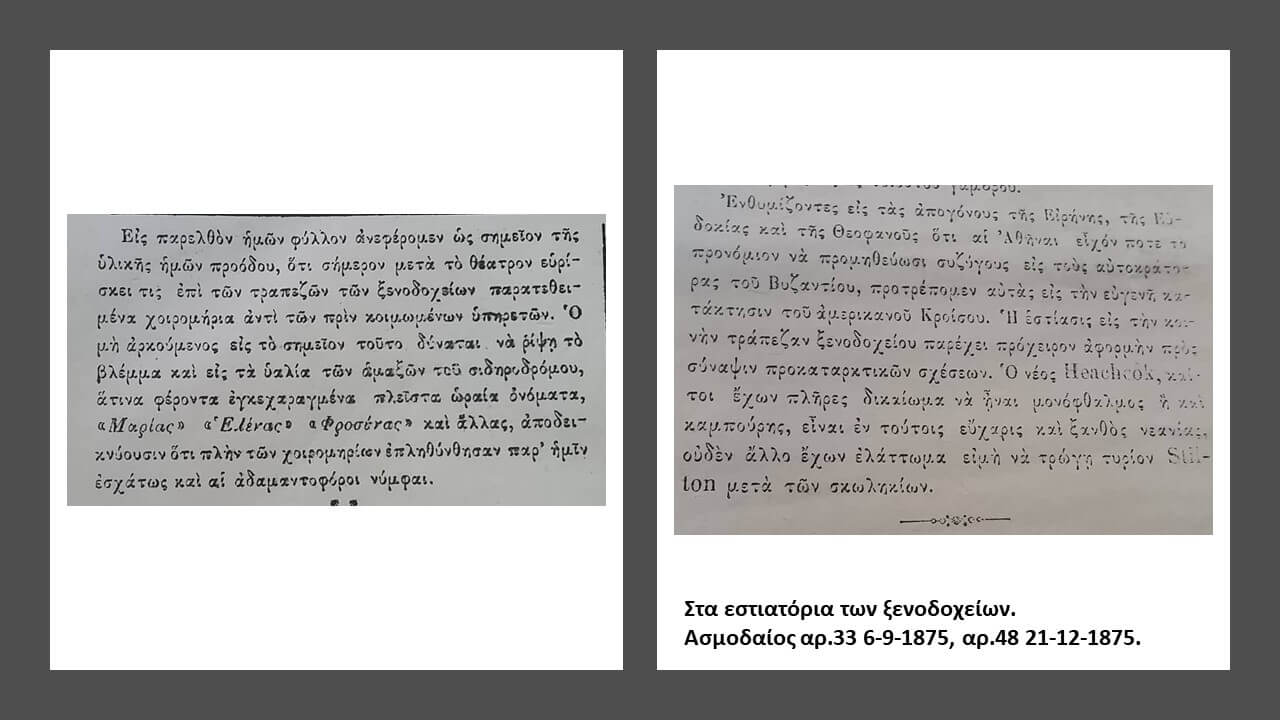 Εἰς παρελθὸν ἡμῶν φύλλον ἀνεφέρομεν ὡς σημεῖον τῆς
ὑλικῆς ἡμῶν προόδου, ὅτι σήμερον μετὰ τὸ θέατρον εὑρί-
σκει τις ἐπὶ τῶν τραπεζῶν τῶν ξενοδοχείων παρατεθει-
μένα χοιρομήρια ἀντὶ τῶν πρὶν κοιμωμένων ὑπηρετῶν. Ὁ
μὴ ἀρκούμενος εἰς τὸ σημεῖον τοῦτο δύναται νὰ ρίψῃ τὸ
βλέμμα καὶ εἰς τὰ ὑαλία τῶν ἁμαξῶν τοῦ σιδηροδρόμου,
ἅτινα φέροντα ἐγκεχαραγμένα πλεῖστα ὡραῖα ὀνόματα,
«Μαρίας» «Ἑλένας» «Φροσένας» καὶ ἄλλας, ἀποδει-
κνύουσιν ὅτι πλὴν τῶν χοιρομηρίων ἐπληθύνθησαν παρ' ἡμῖν
ἐσχάτως καὶ αἱ ἀδαμαντοφόροι νύμφαι.
γαμβροῦ.
Ἐνθυμίζοντες εἰς τὰς ἀπογόνους τῆς Εἰρήνης, τῆς Εὐ-
δοκίας καὶ τῆς Θεοφανοῦς ὅτι αἱ Ἀθῆναι εἶχόν ποτε τὸ
προνόμιον νὰ προμηθεύωσι συζύγους εἰς τοὺς αὐτοκράτο-
ρας τοῦ Βυζαντίου, προτρέπομεν αὐτὰς εἰς τὴν εὐγενῆ κα-
τάκτησιν τοῦ ἀμερικανοῦ Κροίσου. Ἡ ἑστίασις εἰς τὴν κοι-
νὴν τράπεζαν ξενοδοχείου παρέχει πρόχειρον ἀφορμὴν πρὸς
σύναψιν προκαταρκτικῶν σχέσεων. Ὁ νέος Heachcok, καί-
τοι ἔχων πλῆρες δικαίωμα νὰ ᾖναι μονόφθαλμος ἢ καὶ
καμπούρης, εἶναι ἐν τούτοις εὔχαρις καὶ ξανθὸς νεανίας,
οὐδὲν ἄλλο ἔχων ἐλάττωμα εἰμὴ νὰ τρώγῃ τυρίον Stil-
ton μετὰ τῶν σκωληκίων.
Στα εστιατόρια των ξενοδοχείων.
Ασμοδαίος αρ.33 6-9-1875, αρ.48 21-12-1875.